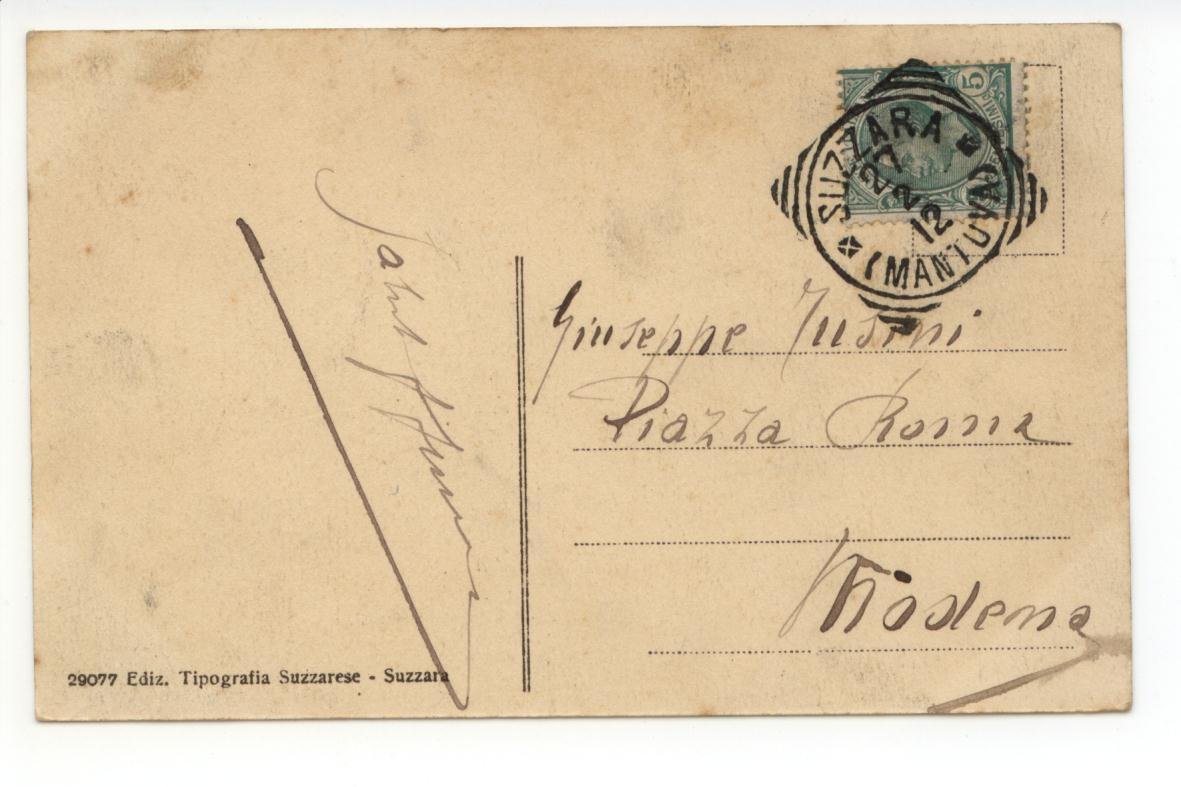 5
SUZZARA
27
2
12
(MANTOVA)
Giuseppe Fusini
Piazza Roma
Modena
29077 Ediz. Tipografia Suzzarese - Suzzara